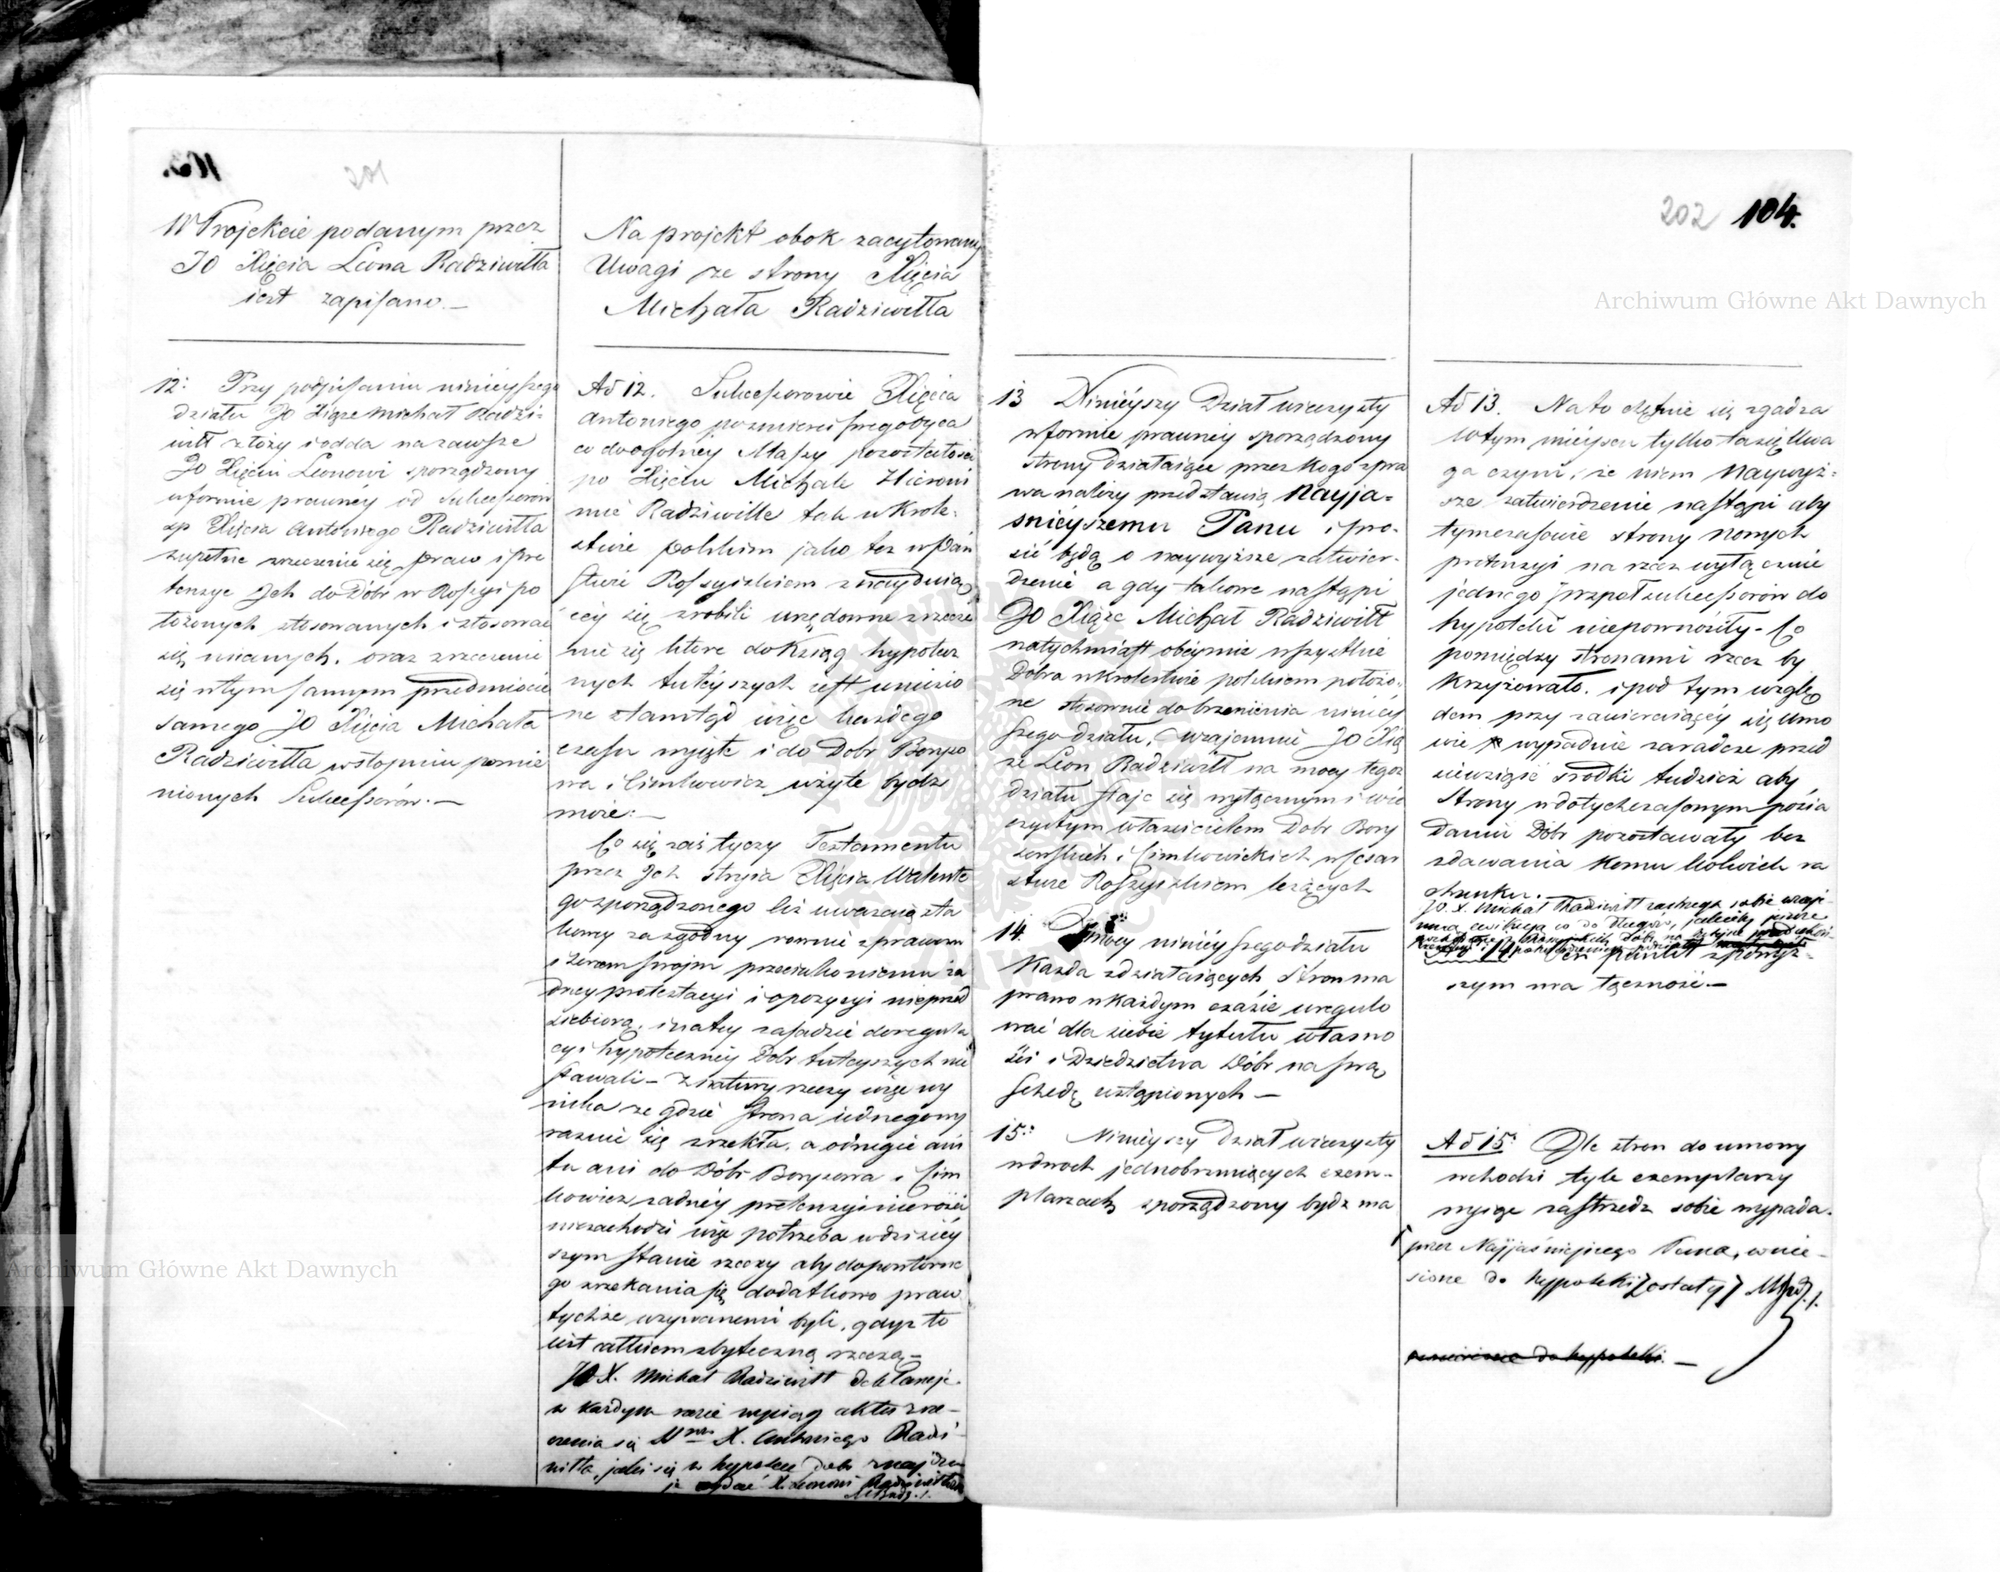 W Projekcie podanym przez
JO Xięcia Leona Radziwiłła
iest zapisano. —
12: Przy podpisaniu ninieyszego
działu JO Xiąże Michał Radzi-
wiłł złoży i odda na zawsze
JO Xięciu Leonowi sporządzony
w formie prawney od Sukcessorów
sp Xięcia Antoniego Radziwiłła
zupełne zrzeczenie się praw i pre
tensye Jch do Dóbr w Rossyi po
łożonych stosowanych i stosować
się mianych. oraz zrzeczenie
się w tym samym przedmiocie
samego JO Xięcia Michała
Radziwiłła wstopniu pomie
nionych Sukcessorów. —
Na projekt obok zacytowany
Uwagi ze strony Xięcia
Michała Radziwiłła
Ad 12. Sukcessorowie Xięcia
Antoniego po śmierci swego oyca
co do ogolney Massy pozostałości
po Xięciu Michale Hieroni
mie Radziwille tak w Krole-
stwie polskim jako też w Pań
stwie Rossyiskiem znayduią
cey się zrobili urzędowne zrzecze
nie się które do Ksiąg hypotecz
nych tuteyszych iest wniesio
ne ztamtąd więc każdego
czasu wyjęte i do Dobr Boryso
wa i Cimkowicz użyte bydź
może: —
Co się zaś tyczy Testamentu
przez Jch stryia Xięcia Walente
go sporządzonego liż uważaią sta
kowy za zgodny rownie z prawem
i przeciwko niemu ża
dney protestacyi i opozycyi nieprzed
siebiorą. i na tey zasadzie do regula
cyi hypoteczney Dobr tuteyszych nie
stawali — Z natury rzeczy więc wy
nika ze gdzie strona iednego wy
raznie się zrzekła. a odrugie ani
tu ani do Dóbr Borysowa i Cim
kowicz żadney pretensyi nierości
niezachodzi więc potrzeba w dzisiey
szym stanie rzeczy aby do powtorne
go zrzekania się dodatkowo praw
tychże wzywanemi byli. gdyż to
iest całkiem zbyteczną rzeczą —
JO X. Michał Radziwiłł deklaruje
w każdym razie wypiąg aktu zrze-
czenia się X. Antoniego Radzi-
wiłła, jaki się w hypotece dobr znajdu
je wydać X. Leonowi Radziwiłłowi
MRadz. /.
202 104.
13 Ninieyszy Dział wieczysty
w formie prawney sporządzony
strony działaiące przez kogo z pra
wa należy przedstawią Nayja-
śnieyszemu Panu i pro-
sić będą o naywyższe zatwier-
dzenie a gdy takowe nastąpi
JO Xiąże Michał Radziwiłł
natychmiast obeymie wszystkie
Dobra w Krolestwie polskiem położo-
ne stosownie do brzmienia niniey
szego działu, wzajemnie JO Xią
że Leon Radziwiłł na mocy tegoż
działu staje się wyłącznym i wie
czystym właścicielem Dobr Bory
sowskich i Cimkowickich w Cesar
stwie Rossyiskiem leżących
14. mocy ninieyszego działu
Każda z działaiących stron ma
prawo w każdym czasie uregulo
wać dla siebie tytułu własno
ści i Dziedzictwa Dóbr na swą
schedę ustąpionych —
15: Ninieyszy Dział wieczysty
w dwoch jednobrzmiących exem-
plarzach sporządzony bydź ma
Ad 13. Na to chętnie się zgadza
w tym mieyscu tylko ta się Uwa
ga czyni, że nim Naywyż-
sze zatwierdzenie nastąpi aby
tymczasowie strony nowych
pretensyi na rzecz wyłącznie
jednego z wspołsukcessorów do
hypotek niepownosiły — Co
pomiędzy stronami rzecz by
krzyżowało. i pod tym wzglę
dem przy zawieraiącey się umo
wie wypadnie zaradcze przed
siewziąść srodki tudzież aby
strony w dotychczasowym posia
daniu Dóbr pozostawały bez
zdawania komu kolwiek ra
chunku.
JO X. Michał Radziwiłł zastrzega sobie wzaje-
mną co do długów,
Ten punkt z powyż-
szym ma łączność. —
Ad 15: Ile stron do umowy
wchodzi tyle exemplarzy
wyiąc zastrzedz sobie wypada.
przez Najjaśniejszego Pana, wnie-
sione do hypoteki zostały / MRadz. /.
do hypoteki. —